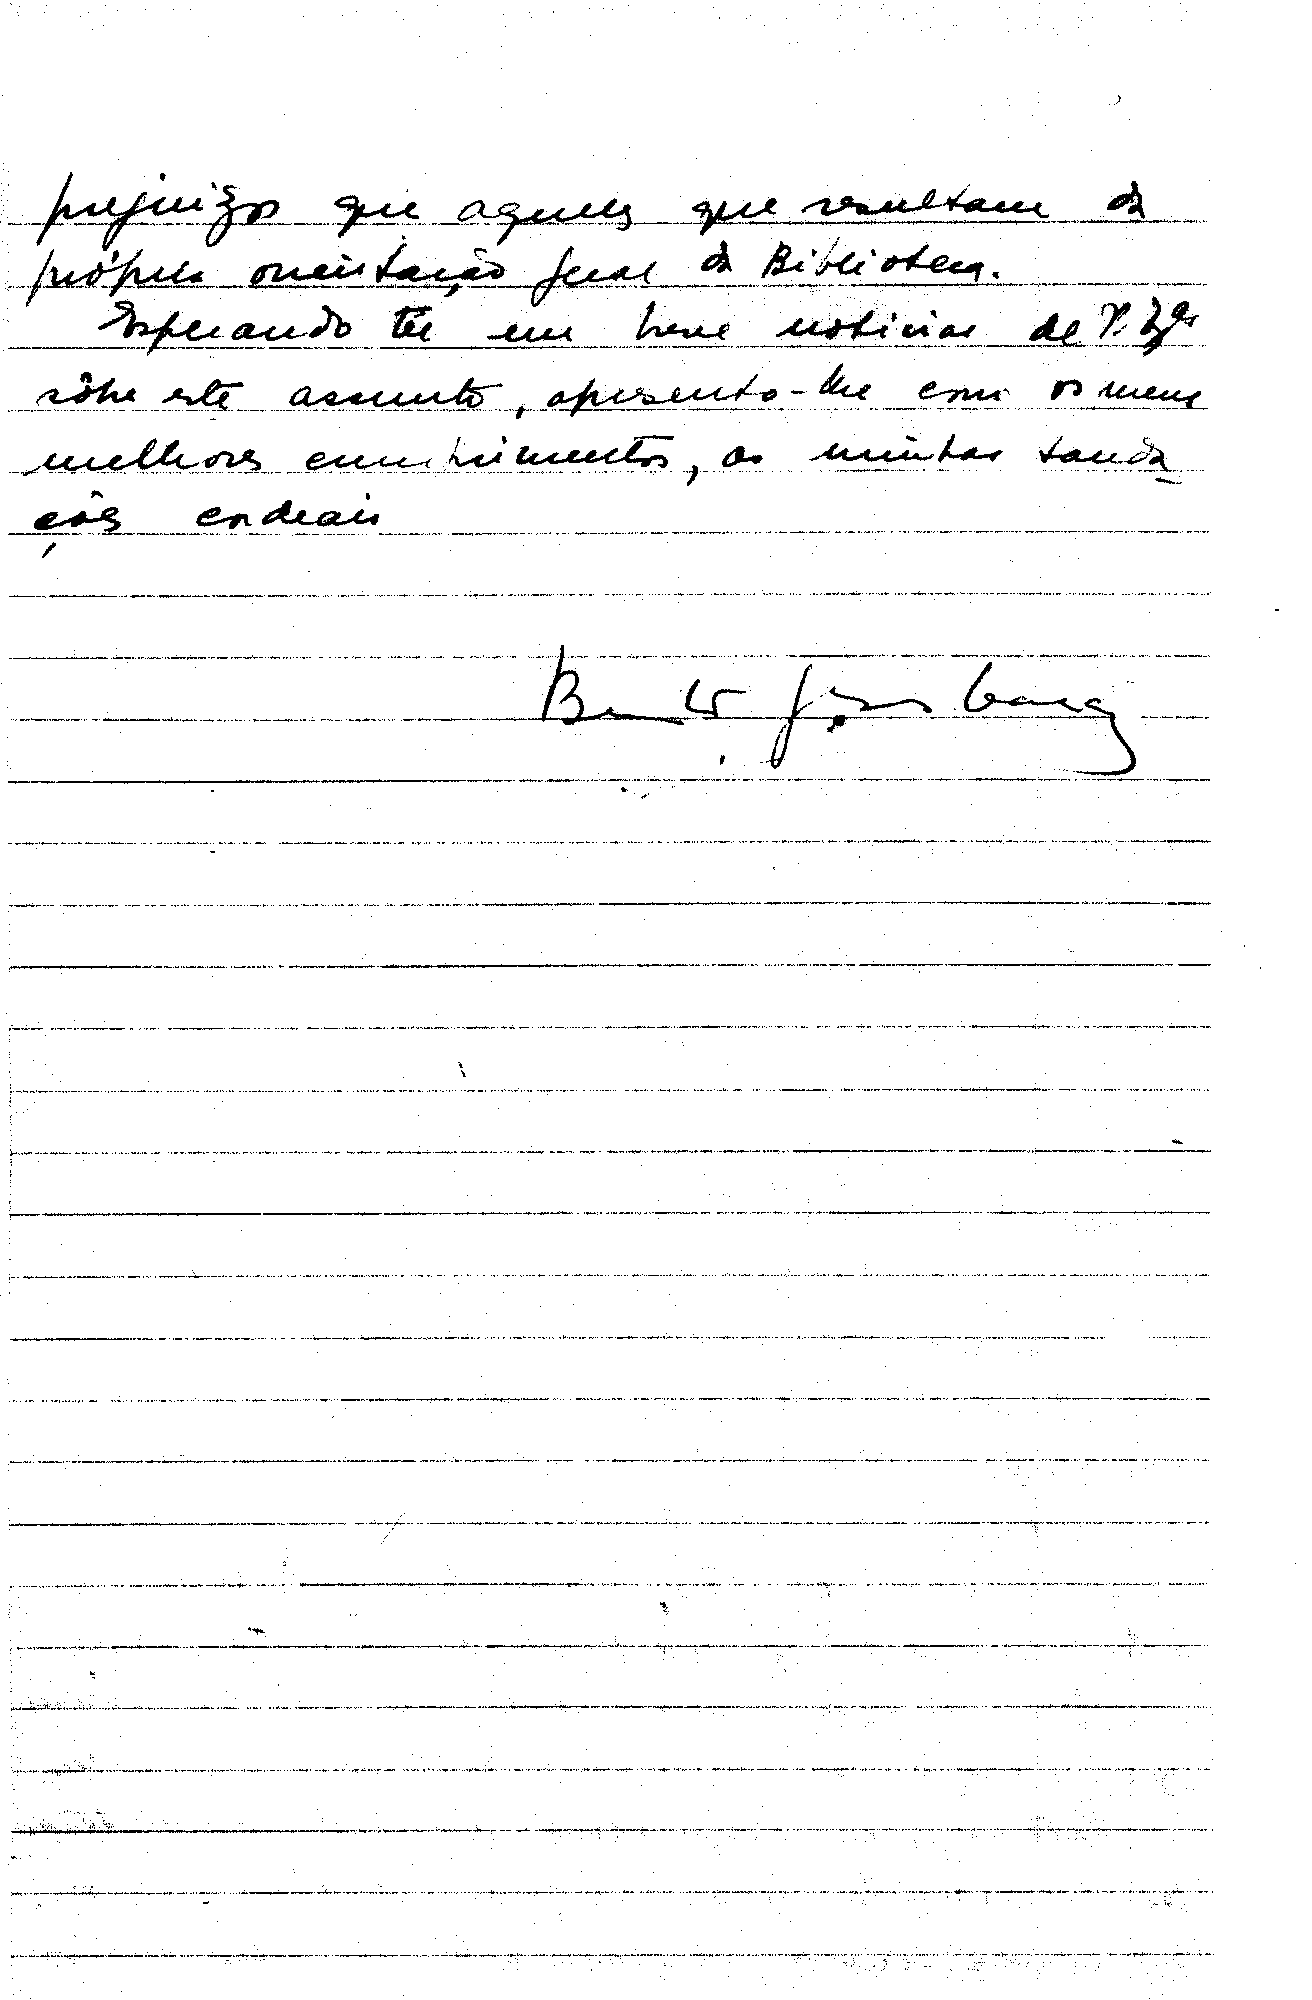 prejuizos que aqueles que resultam da
própria orientação geral da Biblioteca.
Esperando ter em breve noticias de V. Exª
sôbre este assunto, apresento-lhe com os meus
melhores cumprimentos, as minhas sauda-
ções cordeais
Bento Caraça